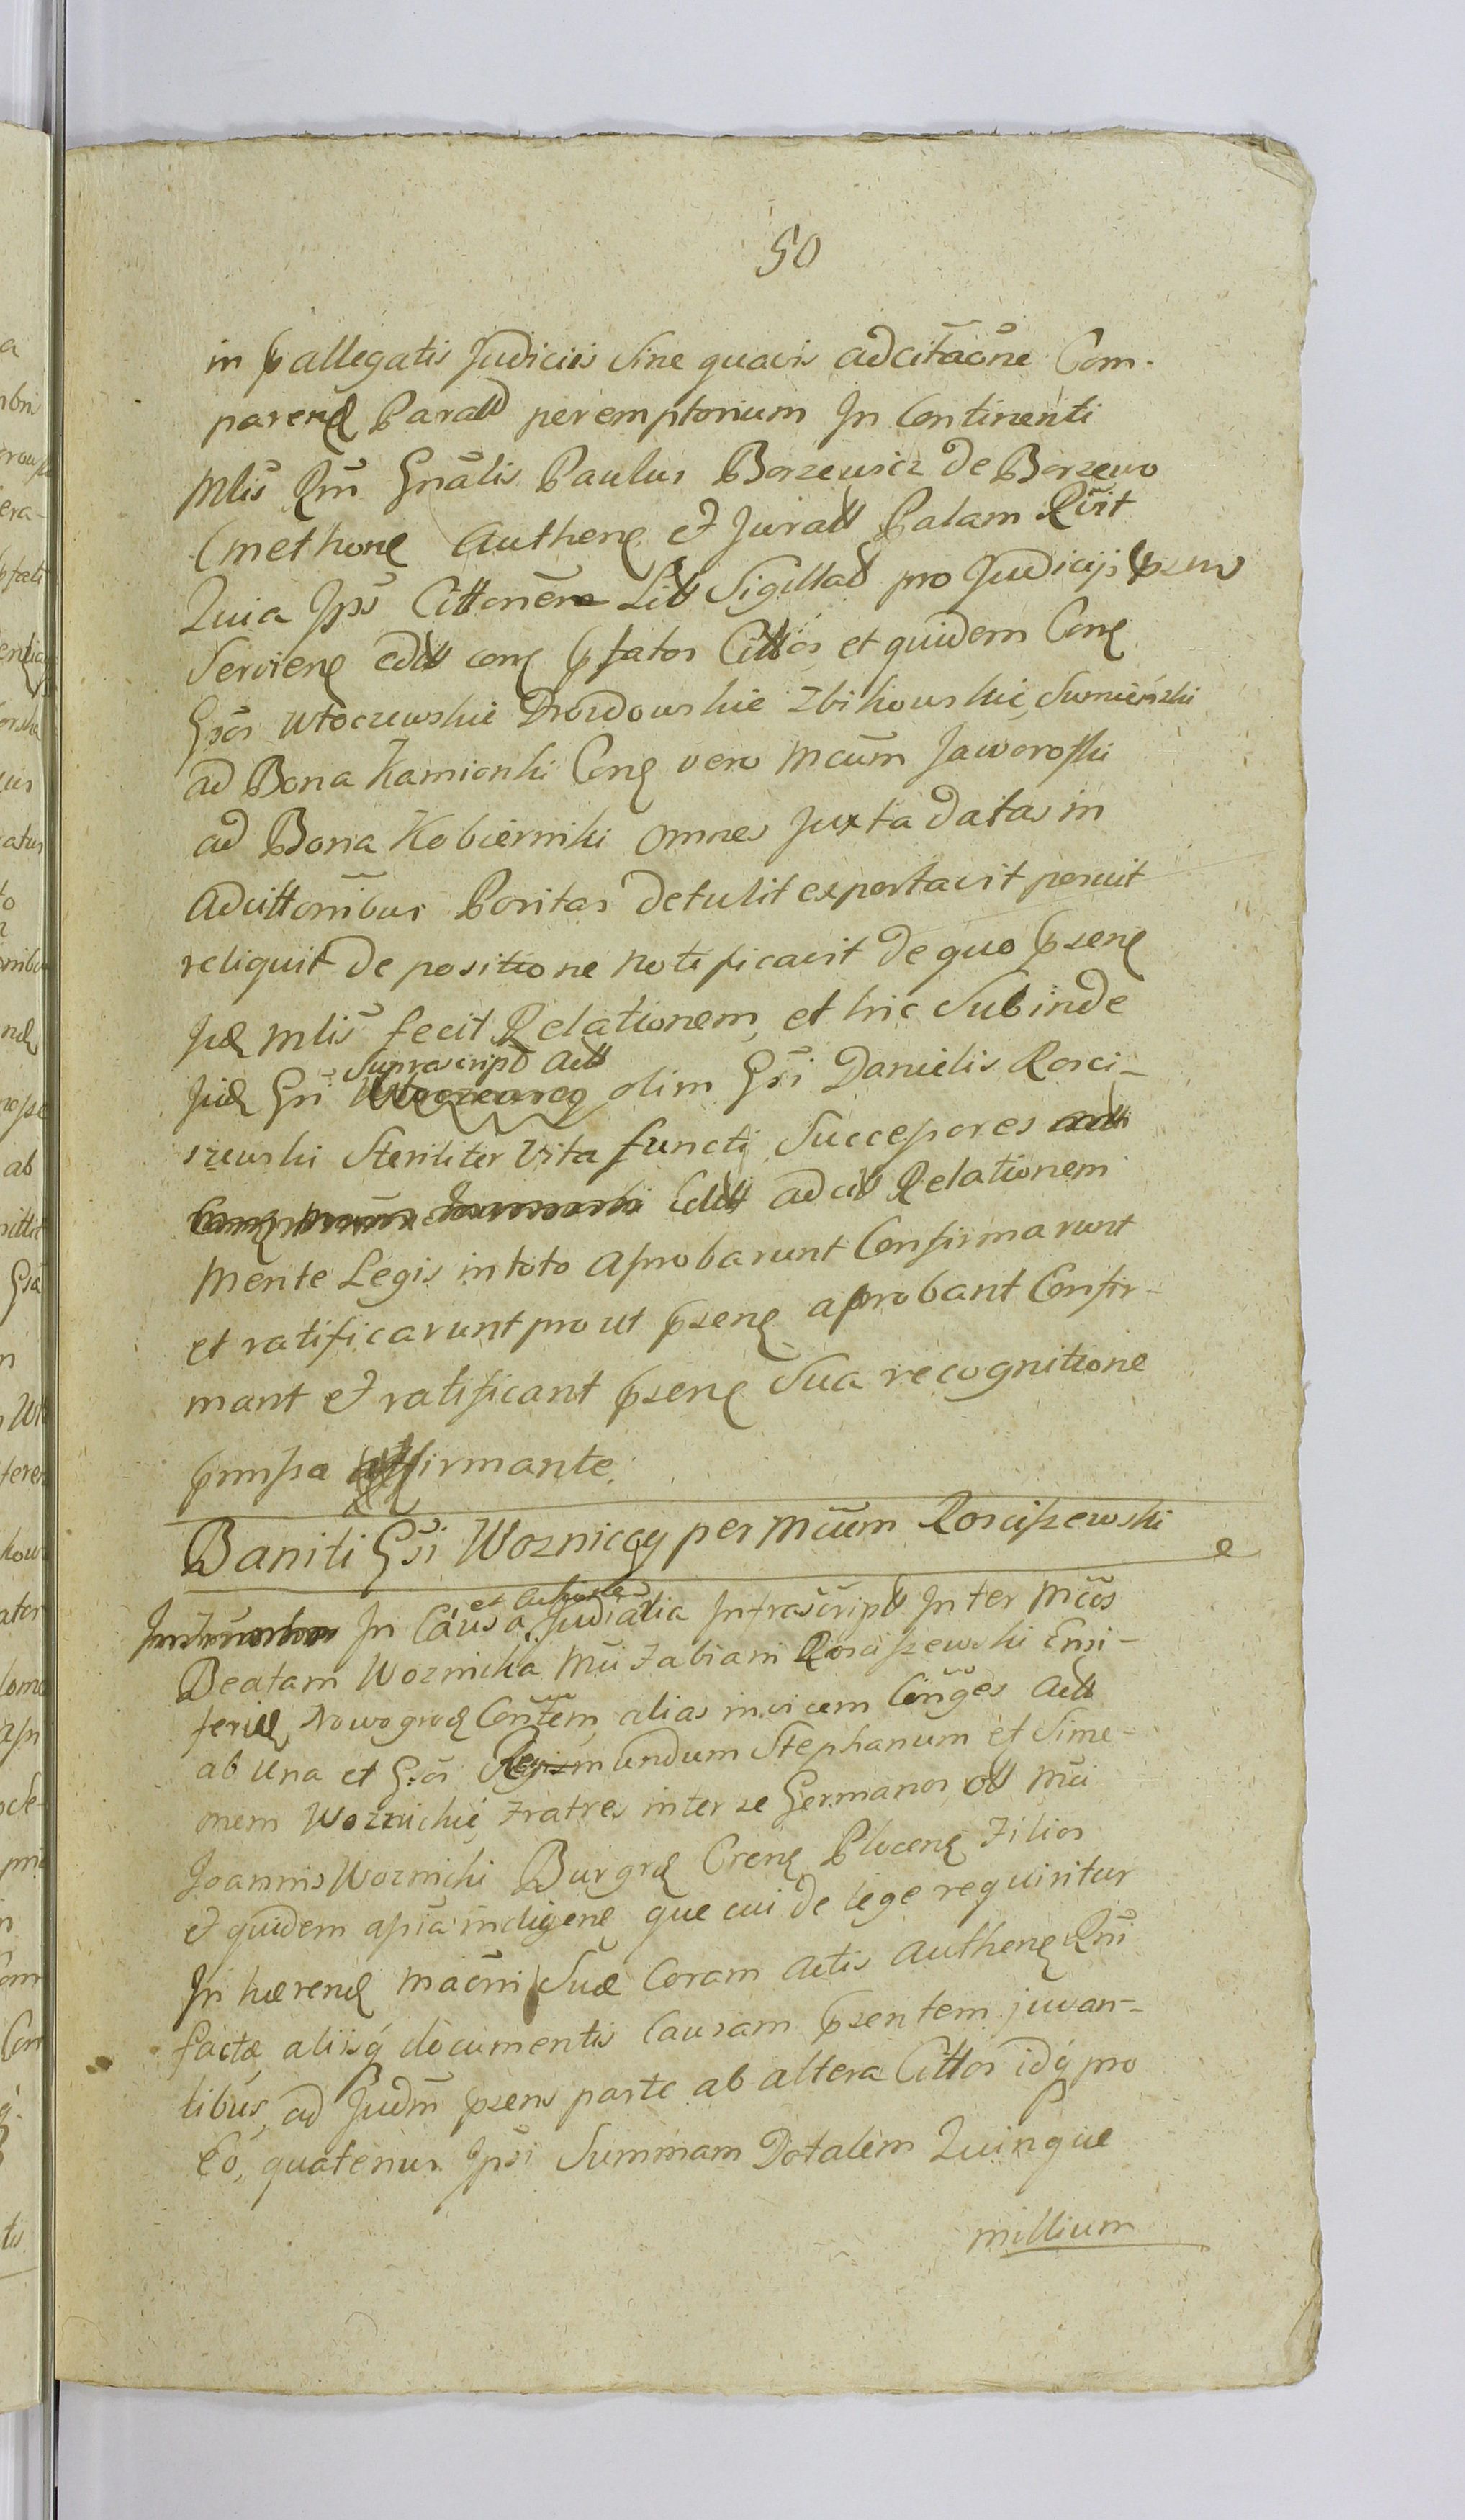 50
in pallegatis Judiciis Sine quavis adcitaone Com-
parend Paratt peremptorium In Continenti
Mlis Rni Gnalis Paulus Borzewicz de Borzewo
Cmethone Authene et Juratt Palam Rvit
Quia Ipse Cittonem Litt Sigillatt pro Judicijs psen
Serviene editt cone pfatos Cittos et quidem Cone
Gsos Włoczewskie Drozdowskie Zbikowskie Sumienski
ad Bona Kamionki Cone vero Mcum Jaworoski
ad Bona Kobierniki omnes juxta datas in
Adcittonibus Positas detulit exportavit posuit
reliquit de positione notificavit de quo psene
Jde Mlis fecit Relationem, et hic Subinde
Suprascript Actt
Jde Gsi olim Gsi Danielis Rosci-
szewski Steriliter Vita functi Successores
Editt adcitt Relationem
mente Legis in toto aprobarunt Confirmarunt
et ratificarunt prout psene aprobant Confir-
mant et ratificant psene Sua recognitione
pmissa affirmante
Baniti Gsi Wozniccy per Mcum Rosciszewski
et actione
In Causa Judialia Infrascript Inter Mcos
Beatam Woznicka Mci Fabiani Rosciszewski Ensi-
feride Nowogrod Contem, alias invicem Coniges Actt
ab una et Gsos mundum Stephanum et Sime-
onem Woznickie Fratres inter se Germanos ott Mci
Joannis Woznicki Burgrd Crene Plocene Filios
et quidem apia indigene que cui de lege requiritur
In hærend maoni Suæ Coram actis Authene Rni
factæ, aliisq documentis Causam psentem juvan-
tibus, ad Judm psens parte ab altera Cittos idq pro
Eo, quatenus Ipsi Summam Dotalem Quinque
millium